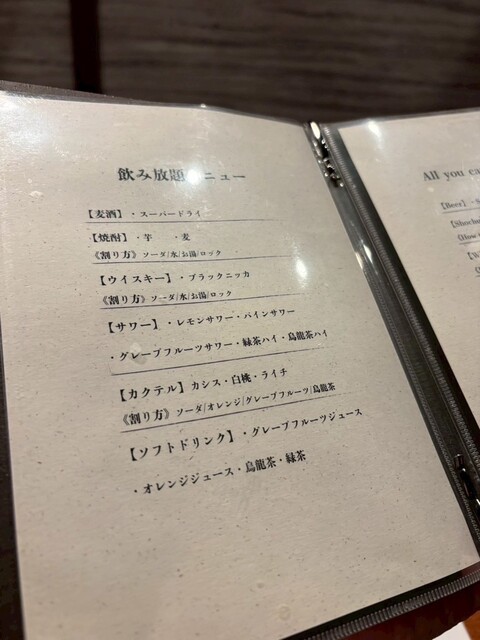 飲み放題メニュー
【麦酒】・スーパードライ
【焼酎】・芋 ・麦
《割り方》ソーダ/水/お湯/ロック
【ウイスキー】・ブラックニッカ
《割り方》ソーダ/水/お湯/ロック
【サワー】・レモンサワー・パインサワー
・グレープフルーツサワー・緑茶ハイ・烏龍茶ハイ
【カクテル】カシス・白桃・ライチ
《割り方》ソーダ/オレンジ/グレープフルーツ/烏龍茶
【ソフトドリンク】・グレープフルーツジュース
・オレンジジュース・烏龍茶・緑茶
All you ca
【Beer】
【Shochu